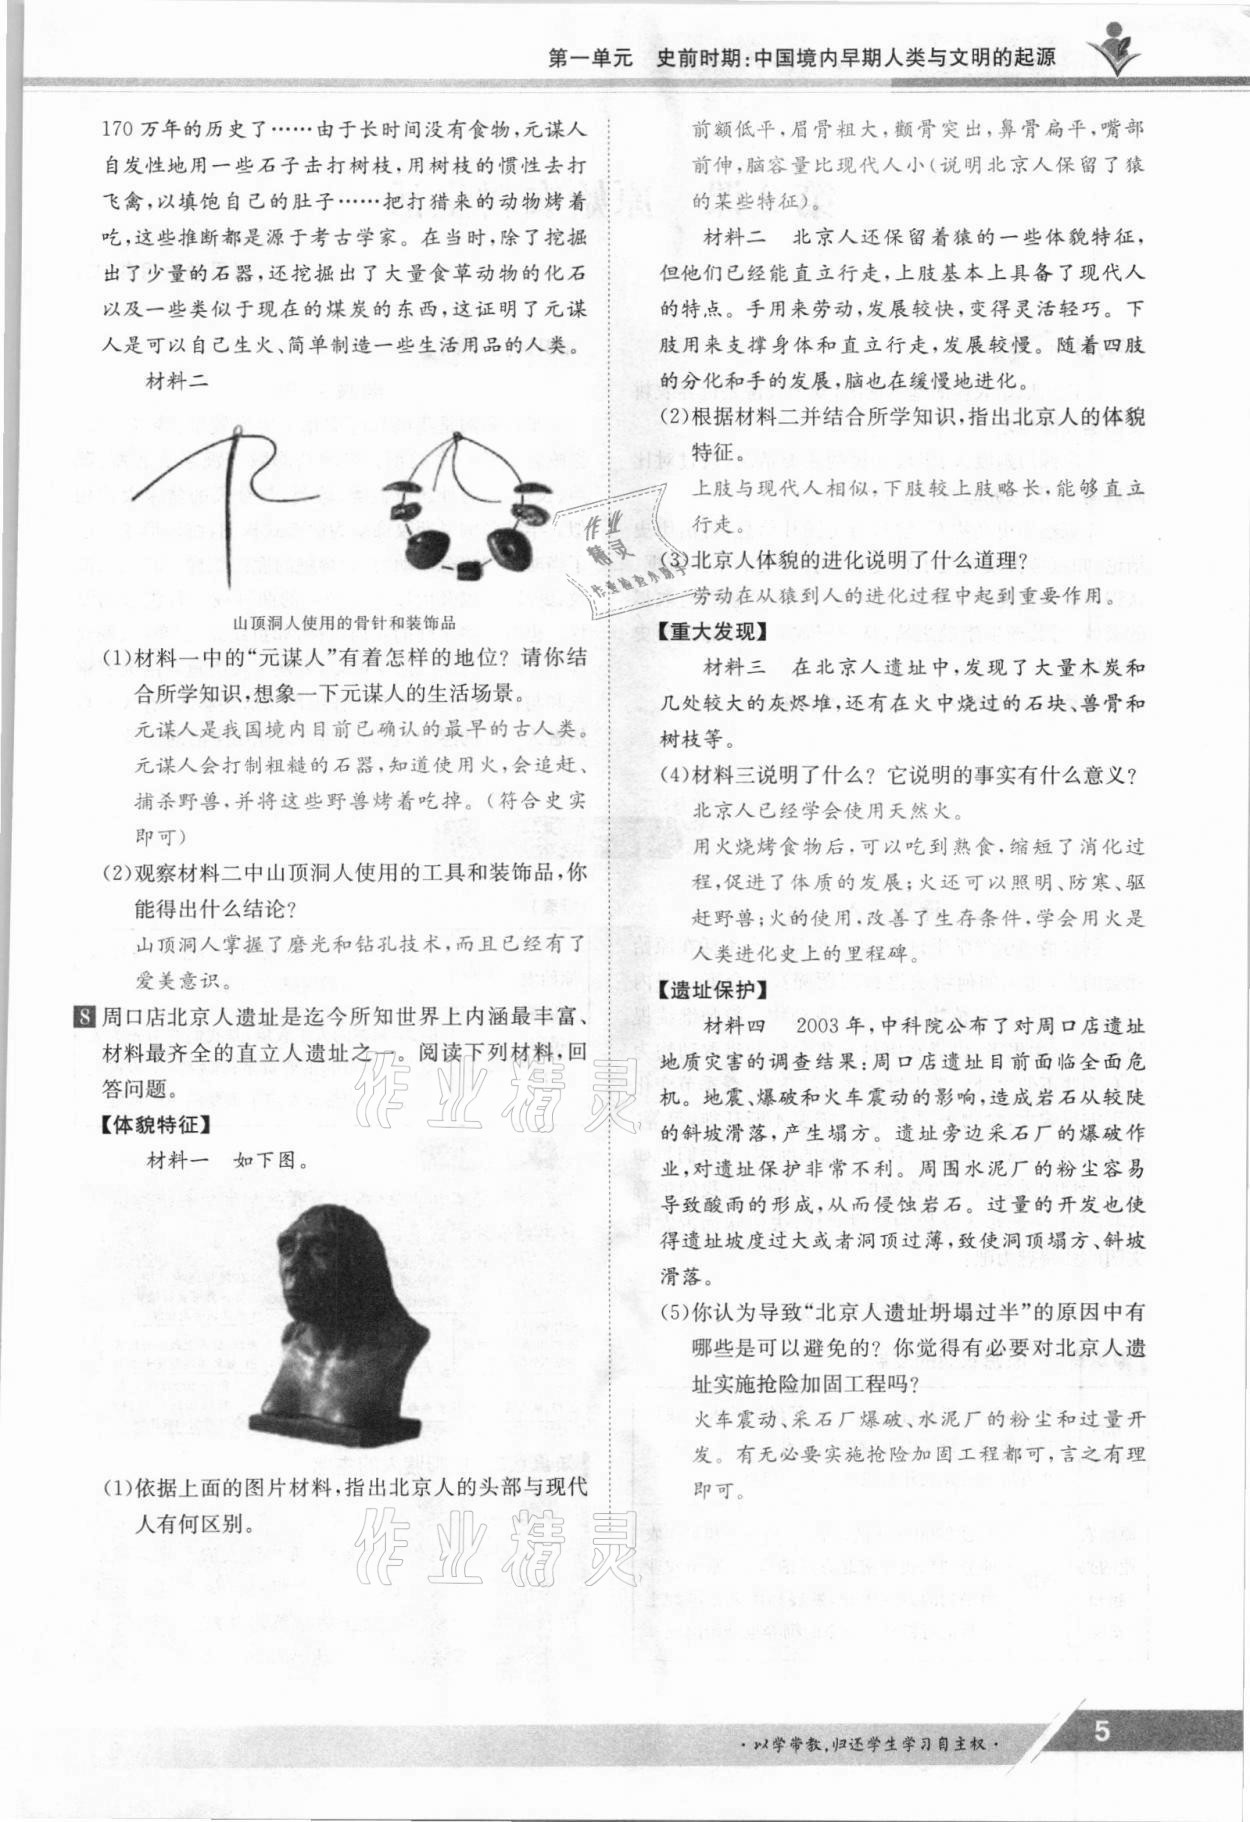 第一单元　史前时期:中国境内早期人类与文明的起源
170 万年的历史了……由于长时间没有食物,元谋人
自发性地用一些石子去打树枝,用树枝的惯性去打
飞禽,以填饱自己的肚子……把打猎来的动物烤着
吃,这些推断都是源于考古学家。在当时,除了挖掘
出了少量的石器,还挖掘出了大量食草动物的化石
以及一些类似于现在的煤炭的东西,这证明了元谋
人是可以自己生火、简单制造一些生活用品的人类。
材料二
山顶洞人使用的骨针和装饰品
(1)材料一中的“元谋人”有着怎样的地位？请你结
合所学知识,想象一下元谋人的生活场景。
元谋人是我国境内目前已确认的最早的古人类。
元谋人会打制粗糙的石器,知道使用火,会追赶、
捕杀野兽,并将这些野兽烤着吃掉。(符合史实
即可)
(2)观察材料二中山顶洞人使用的工具和装饰品,你
能得出什么结论?
山顶洞人掌握了磨光和钻孔技术,而且已经有了
爱美意识。
8 周口店北京人遗址是迄今所知世界上内涵最丰富、
材料最齐全的直立人遗址之一。阅读下列材料,回
答问题。
【体貌特征】
材料一　如下图。
(1)依据上面的图片材料,指出北京人的头部与现代
人有何区别。
前额低平,眉骨粗大,颧骨突出,鼻骨扁平,嘴部
前伸,脑容量比现代人小(说明北京人保留了猿
的某些特征)。
材料二　北京人还保留着猿的一些体貌特征,
但他们已经能直立行走,上肢基本上具备了现代人
的特点。手用来劳动,发展较快,变得灵活轻巧。下
肢用来支撑身体和直立行走,发展较慢。随着四肢
的分化和手的发展,脑也在缓慢地进化。
(2)根据材料二并结合所学知识,指出北京人的体貌
特征。
上肢与现代人相似,下肢较上肢略长,能够直立
行走。
(3)北京人体貌的进化说明了什么道理?
劳动在从猿到人的进化过程中起到重要作用。
【重大发现】
材料三　在北京人遗址中,发现了大量木炭和
几处较大的灰烬堆,还有在火中烧过的石块、兽骨和
树枝等。
(4)材料三说明了什么？它说明的事实有什么意义?
北京人已经学会使用天然火。
用火烧烤食物后,可以吃到熟食,缩短了消化过
程,促进了体质的发展;火还可以照明、防寒、驱
赶野兽;火的使用,改善了生存条件,学会用火是
人类进化史上的里程碑。
【遗址保护】
材料四　2003 年,中科院公布了对周口店遗址
地质灾害的调查结果:周口店遗址目前面临全面危
机。地震、爆破和火车震动的影响,造成岩石从较陡
的斜坡滑落,产生塌方。遗址旁边采石厂的爆破作
业,对遗址保护非常不利。周围水泥厂的粉尘容易
导致酸雨的形成,从而侵蚀岩石。过量的开发也使
得遗址坡度过大或者洞顶过薄,致使洞顶塌方、斜坡
滑落。
(5)你认为导致“北京人遗址坍塌过半”的原因中有
哪些是可以避免的？你觉得有必要对北京人遗
址实施抢险加固工程吗?
火车震动、采石厂爆破、水泥厂的粉尘和过量开
发。有无必要实施抢险加固工程都可,言之有理
即可。
作业
精灵
作业检查小助手
作业精灵
作业精灵
·以学带教,归还学生学习自主权·
5